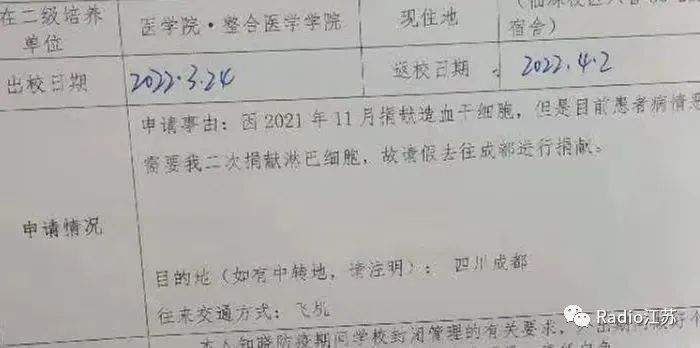 在二级培养
单位
医学院·整合医学学院
现住地
宿舍)
出校日期
2022.3.24
返校日期
2022.4.2
申请情况
申请事由：因2021年11月捐献造血干细胞，但是目前患者病情
需要我二次捐献淋巴细胞，故请假去往成都进行捐献。
目的地（如有中转地，请注明）：四川成都
往来交通方式：飞机
本人知晓防疫期间学校封闭管理的有关要求，
Radio江苏